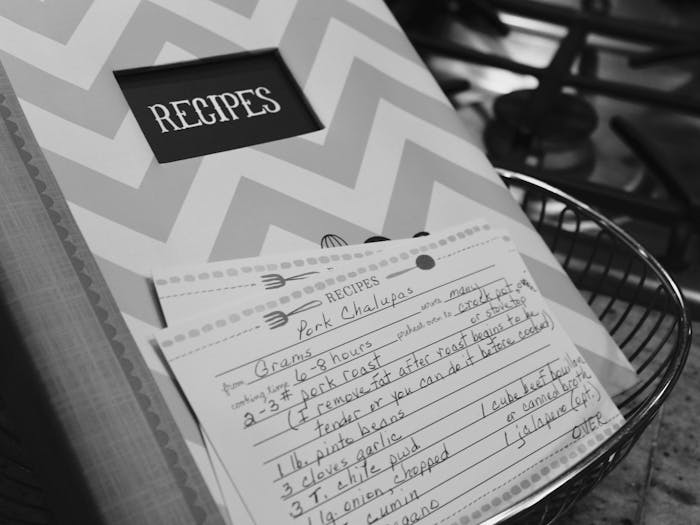 RECIPES
RECIPES
Pork Chalupas
from Grams serves many
cooking time 6-8 hours preheat oven to crock pot oven
or stove top
2-3# pork roast
(I remove fat after roast begins to be
tender or you can do it before cooked)
1 lb. pinto beans 1 cube beef bouillon
3 cloves garlic or canned broth
3 T. chile pwd 1 jalapeno (opt.)
1 lg. onion, chopped
cumin OVER